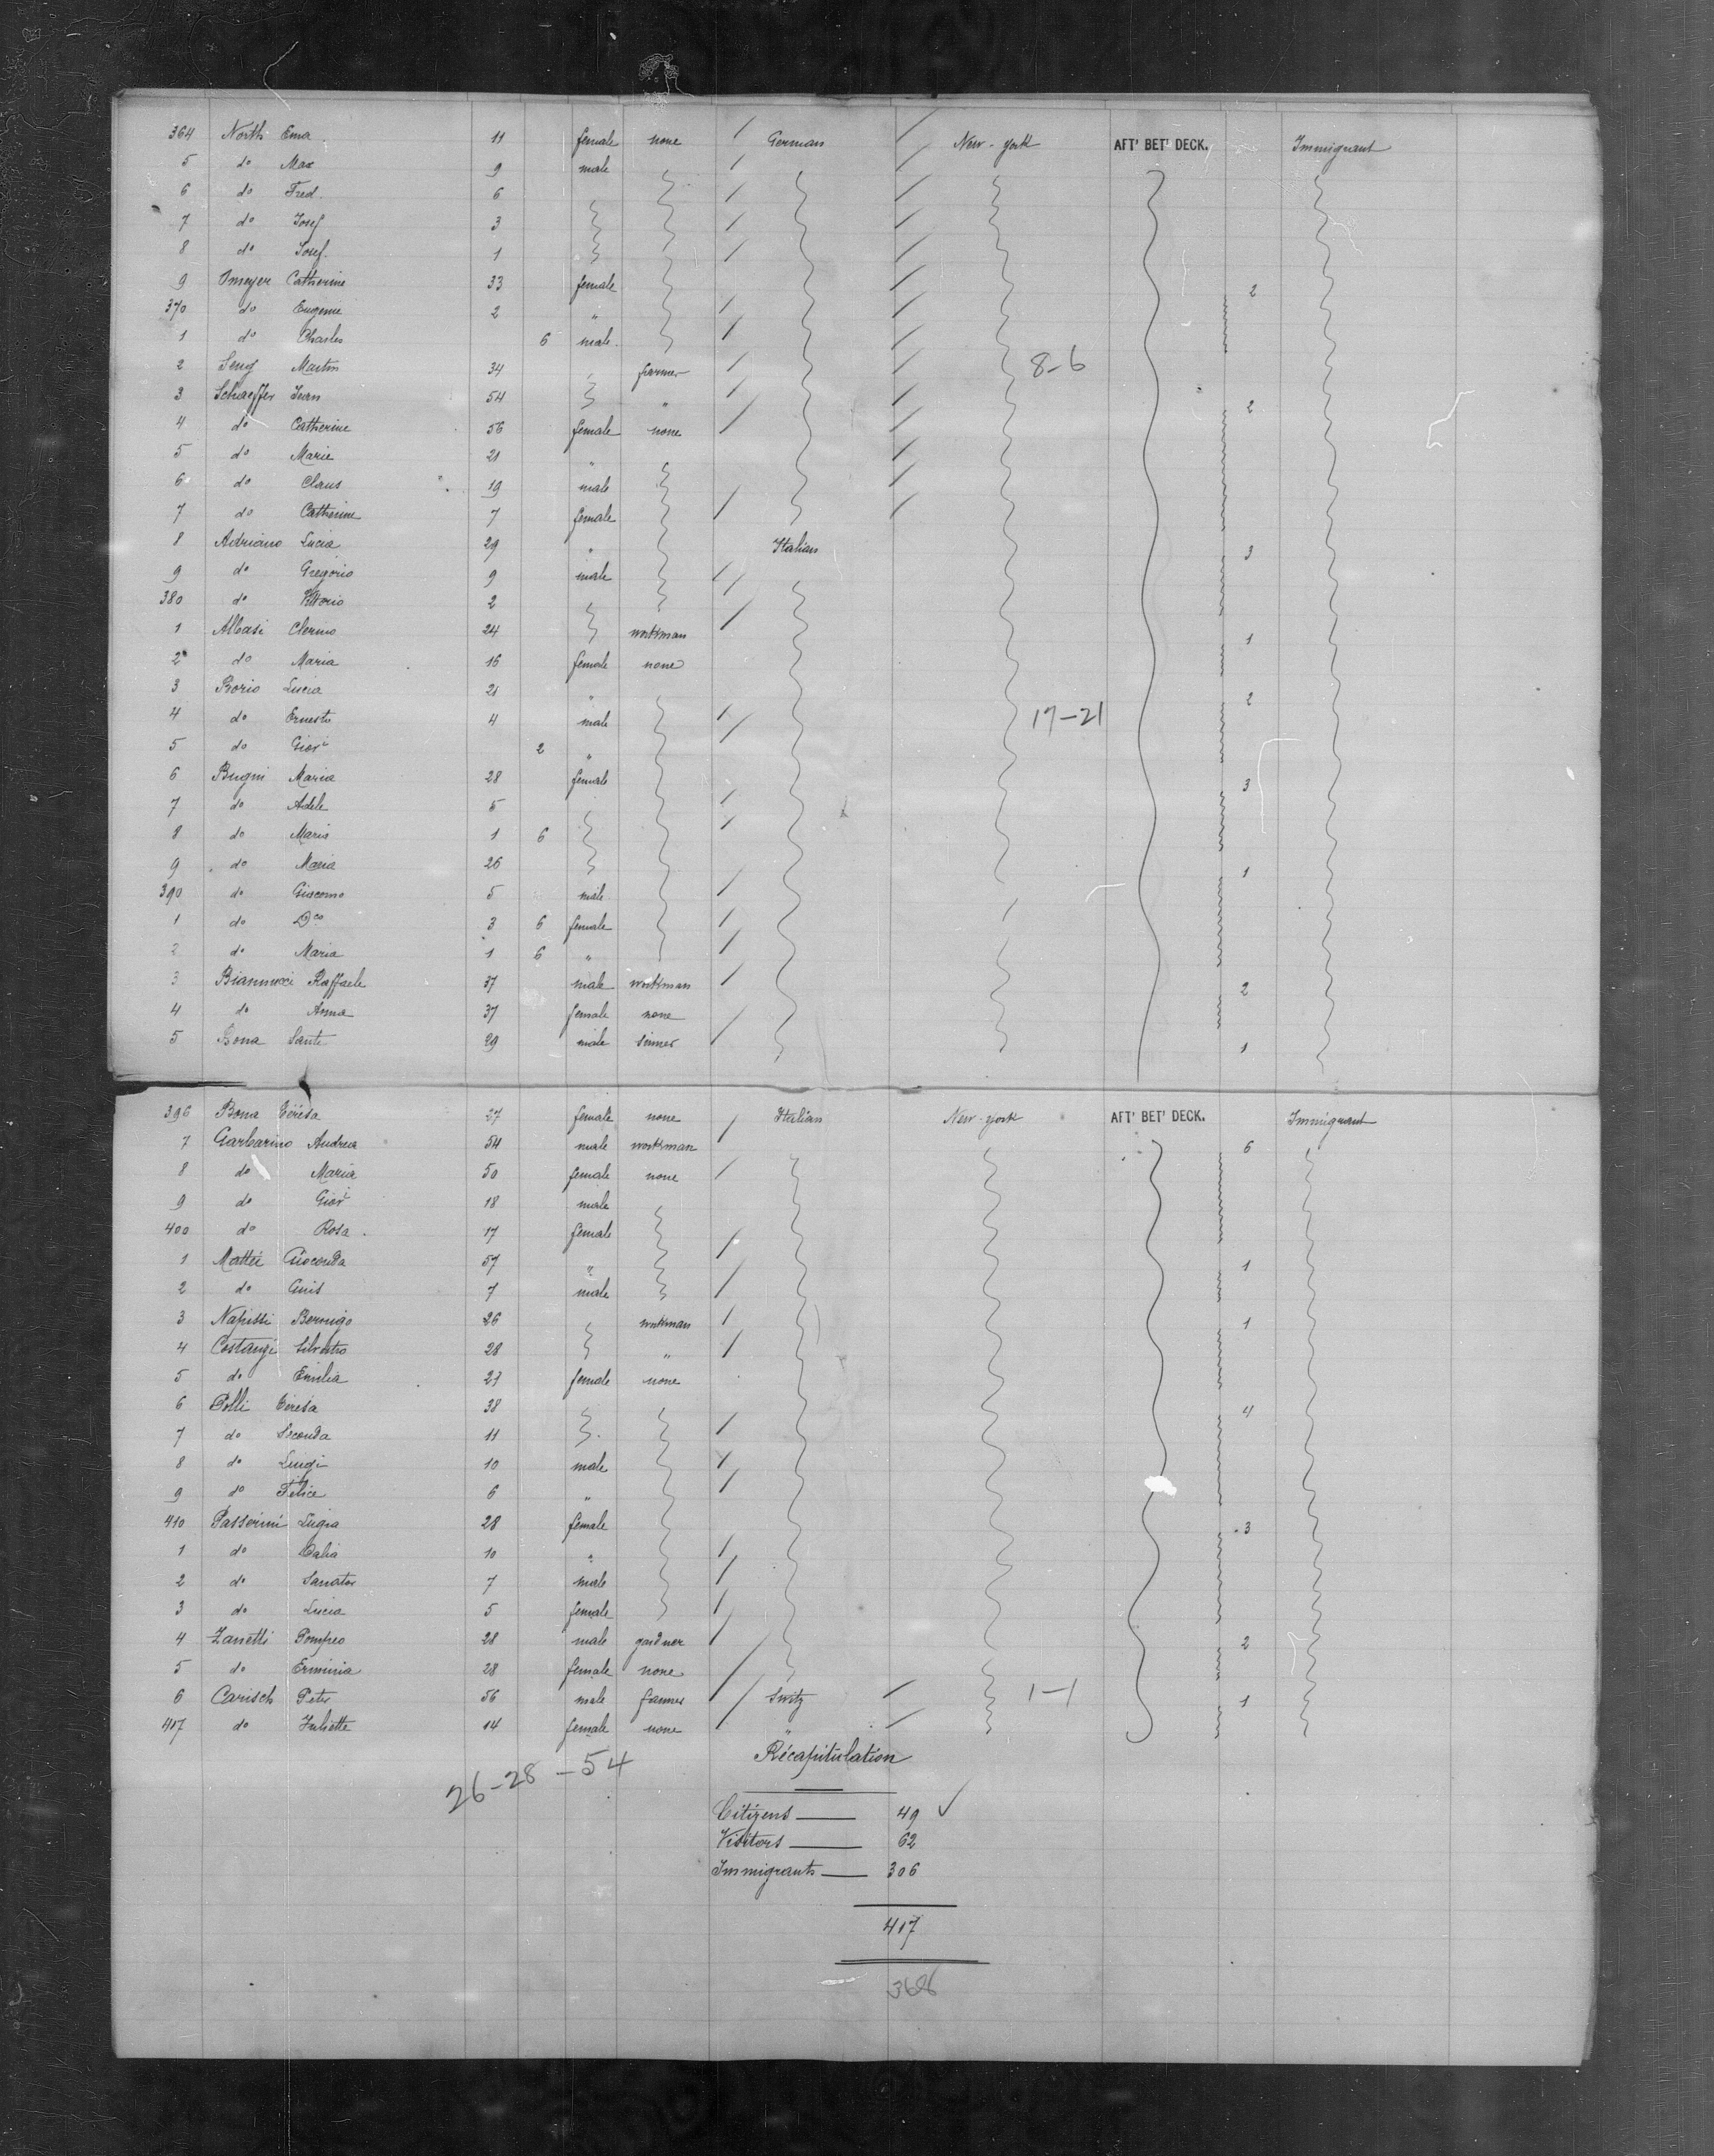 364 North Ema 11 female none German New-york AFT' BET' DECK. Immigrant
5 do Max 9 male
6 do Fred. 6
7 do Josef 3
8 do Josef. 1
9 Omeyer Catherine 33 female 2
370 do Eugenie 2 "
1 do Charles 6 male.
2 Seng Martin 34 farmer 8-6
3 Schaeffer Jean 54 " 2
4 do Catherine 56 female none
5 do Marie 21 "
6 do Claus 19 male
7 do Catherine 7 female
8 Adriano Lucia 29 " Italian 3
9 do Gregorio 9 male
380 do Vittorio 2
1 Albasi 24 workman 1
2 do Maria 16 female none
3 Borio Lucia 21 " 2
4 do Ernesto 4 male 17-21
5 do Giov 2 "
6 Bugni Maria 28 female 3
7 do Adele 5
8 do Maria 1 6
9 do Maria 26 1
390 do Giacomo 5 male
1 do Dco 3 6 female
2 do Maria 1 6 "
3 Raffaele 37 male workman 2
4 do Anna 37 female none
5 Bona Sante 29 male 1
396 Bona Térésa 27 female none Italian New-york AFT' BET' DECK. Immigrant
7 Garbarino Andrea 54 male workman 6
8 do Maria 50 female none
9 do Giov 18 male
400 do Rosa 17 female
1 Mattei Gioconda 57 " 1
2 do 7 male
3 26 workman 1
4 Costangi Silvestro 28 "
5 do Emilia 27 female none
6 Polli Térésa 38 4
7 do Séconda 11
8 do Luigi 10 male
9 do Félice 6 "
410 Passerini Lugia 28 female 3
1 do Dalia 10 "
2 do Sanator 7 male
3 do Lucia 5 female
4 Zanetti Pompeo 28 male gardner 2
5 do Erminia 28 female none
6 Carisch Peter 56 male farmer Switz 1-1 1
417 do Juliette 14 female none "
Récapitulation
26-28-54
Citizens 49 ✓
Visitors 62
Immigrants 306
417